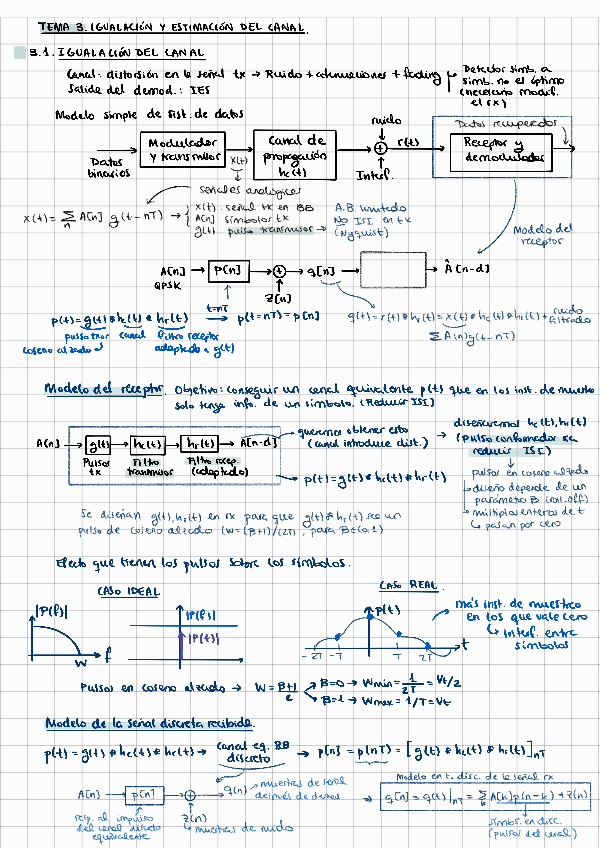 TEMA 3. IGUALACIÓN Y ESTIMACIÓN DEL CANAL.
3.1. IGUALACIÓN DEL CANAL
Canal: distorsión en la señal tx → Ruido + atenuaciones + fading
Detector simb. a
simb. no el óptimo
(necesario modif.
el rx)
Salida del demod.: IES
Modelo simple de sist. de datos
Datos binarios
Modulador y transmisor
x(t)
Canal de propagación hc(t)
ruido
+
Interf.
r(t)
Datos recuperados
Receptor y demodulador
señales analógicas
x(t) = Σ A[n] g(t-nT) →
n
x(t): señal tx en BB
A[n] símbolos tx
g(t) pulso transmisor →
A.B. limitado
No ISI en tx
(Nyquist)
Modelo del receptor
A[n]
QPSK
p[n]
+
z[n]
q[n]
Â[n-d]
p(t) = g(t) * hc(t) * hr(t)
t=nT
→ p(t=nT) = p[n]
pulso tx
canal
filtro receptor
coseno alzado
adaptado a g(t)
q(t) = r(t) * hr(t) = x(t) * hc(t) * hr(t) + ruido filtrado
Σ A(n)g(t-nT)
Modelo del receptor. Objetivo: conseguir un canal equivalente p(t) que en los inst. de muestreo
solo tenga info. de un símbolo. (Reducir ISI)
A[n] → g(t) → hc(t) → hr(t) → A[n-d]
Pulsos tx
Filtro transmisor
Filtro recep. (adaptado)
queremos obtener esto
(canal introduce dist.)
p(t) = g(t) * hc(t) * hr(t)
diseñaremos hc(t), hr(t)
(pulso conformador para
reducir ISI)
pulsos en coseno alzado
diseño depende de un
parámetro B (roll-off)
multiplos enteros de t
pasan por cero
Se diseñan g(t), hr(t) en rx para que g(t) * hr(t) sea un
pulso de coseno alzado (W = (B+1)/(2T), para B∈(0,1)
Efecto que tienen los pulsos sobre los símbolos.
CASO IDEAL
CASO REAL
|P(f)|
W
f
|P(f)|
|P(t)|
p(t)
-2T
-T
T
2T
t
más inst. de muestreo
en los que vale cero
Interf. entre
símbolos
Pulsos en coseno alzado → W = B+1 / 2
B=0 → Wmin = 1/2T = Vt/2
B=1 → Wmax = 1/T = Vt
Modelo de la señal discreta recibida.
p(t) = g(t) * hc(t) * hr(t) → canal eq. BB discreto → p[n] = p(nT) = [g(t) * hc(t) * hr(t)]nT
A[n]
p[n]
+
q(n)
muestras de señal
después de
z(n)
muestras de ruido
resp. al impulso
del canal discreto
equivalente
Modelo en t. disc. de la señal rx
q[n] = q(t)|nT = Σ A[k]p(n-k) + z(n)
k
simbs. en disc.
(pulsos del canal)